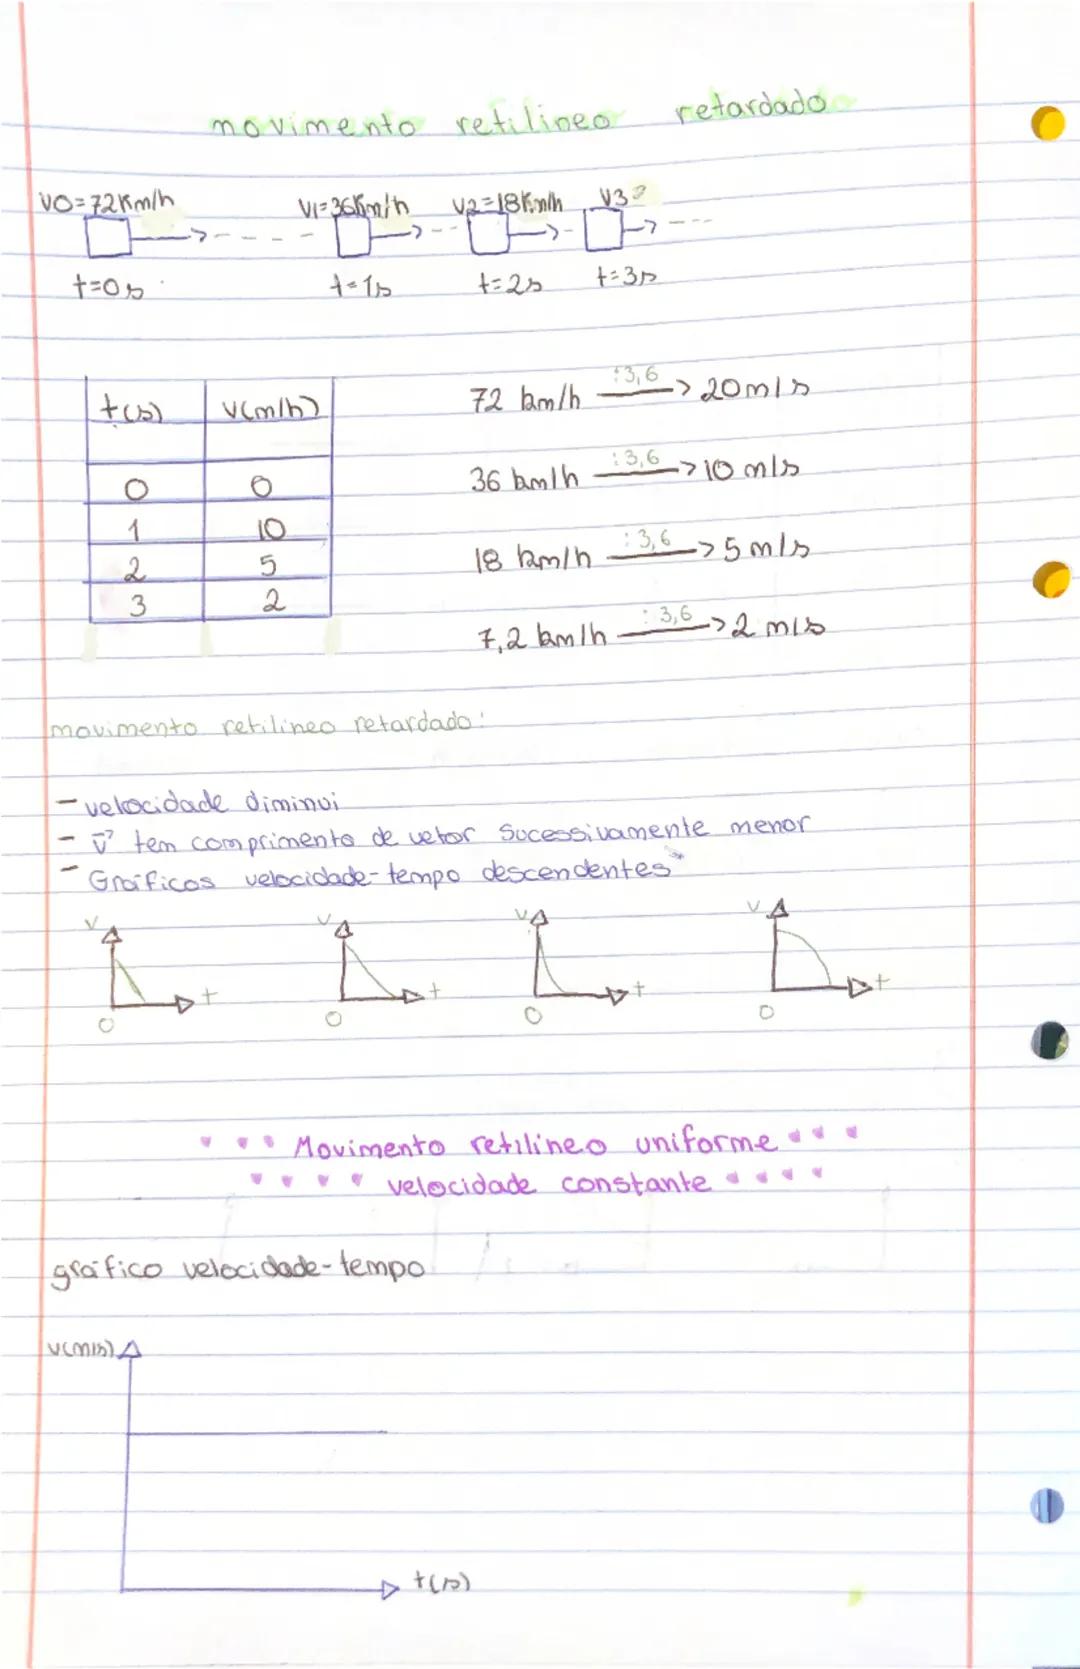 movimento retilineo retardado
V0=72Km/h V1=36Km/h V2=18Km/h V3?
t=0s t=1s t=2s t=3s
t(s) v(m/h)
0 0
1 10
2 5
3 2
72 km/h :3,6 -> 20 m/s
36 km/h :3,6 -> 10 m/s
18 km/h :3,6 -> 5 m/s
7,2 km/h :3,6 -> 2 m/s
movimento retilineo retardado:
- velocidade diminui
- v⃗ tem comprimento de vetor sucessivamente menor
- Gráficos velocidade-tempo descendentes
v v v v
t t t t
0 0 0 0
Movimento retilineo uniforme
velocidade constante
gráfico velocidade-tempo
v(m/s)
t(s)